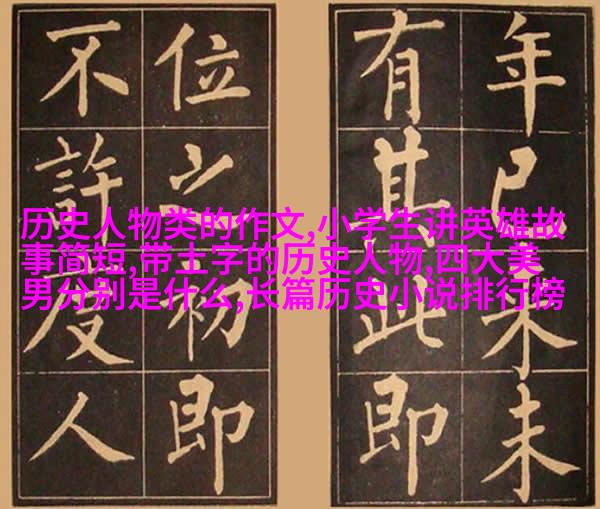 年已来未
有其此即
位之初即
不許度人
历史人物类的作文,小学生讲英雄故
事简短,带土字的历史人物,四大美
男分别是什么,长篇历史小说排行榜